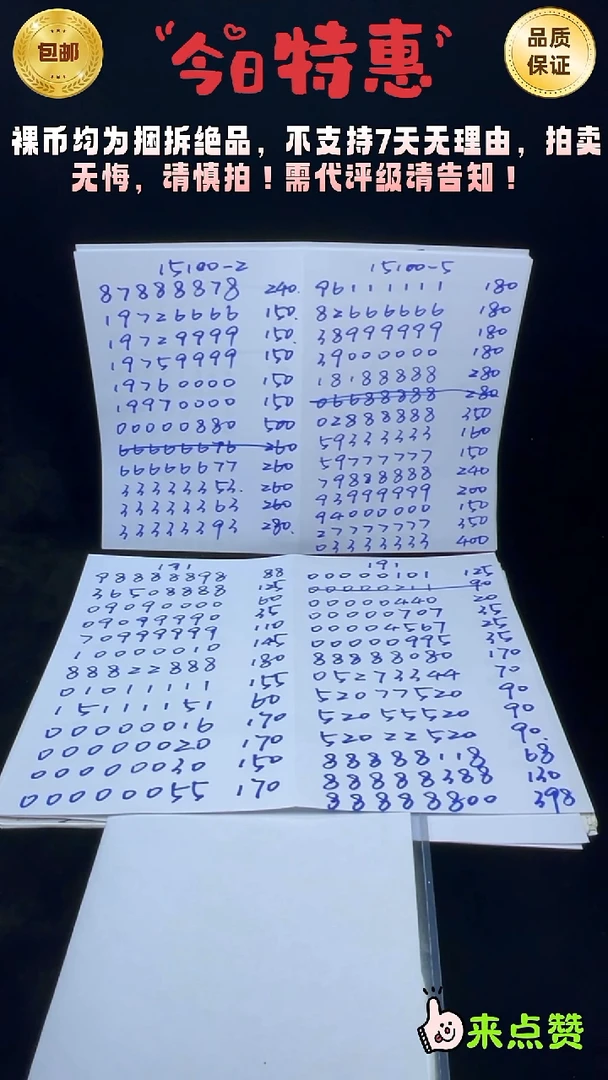 包邮
今日特惠
品质
保证
裸币均为捆拆绝品，不支持7天无理由，拍卖
无悔，请慎拍！需代评级请告知！
15100-2
87888878 240.
19726666 150.
19729999 150.
19759999 150
19760000 150
19970000 150
00000880 500
66666676 260
66666677 260
33333353. 260
33333363 260
33333393 280.
15100-5
96111111 180
82666666 180
38999999 180
39000000 180
18188888 280
06688888 280
02888888 350
59333333 160
59777777 150
79888888 240
93999999 200
94000000 150
27777777 350
03333333 400
191
98888898 88
36508888 125
09090000 60
09099990 35
70999999 110
10000010 145
88822888 180
01011111 155
15111151 60
00000016 170
00000020 170
00000030 150
00000055 170
191
00000101 125
00000211 90
00000440 20
00000707 35
00004567 25
00000995 35
88888080 170
05273344 70
52077520 90
52055520 90
52022520 90.
88888118 68
88888388 130
88888800 398
来点赞